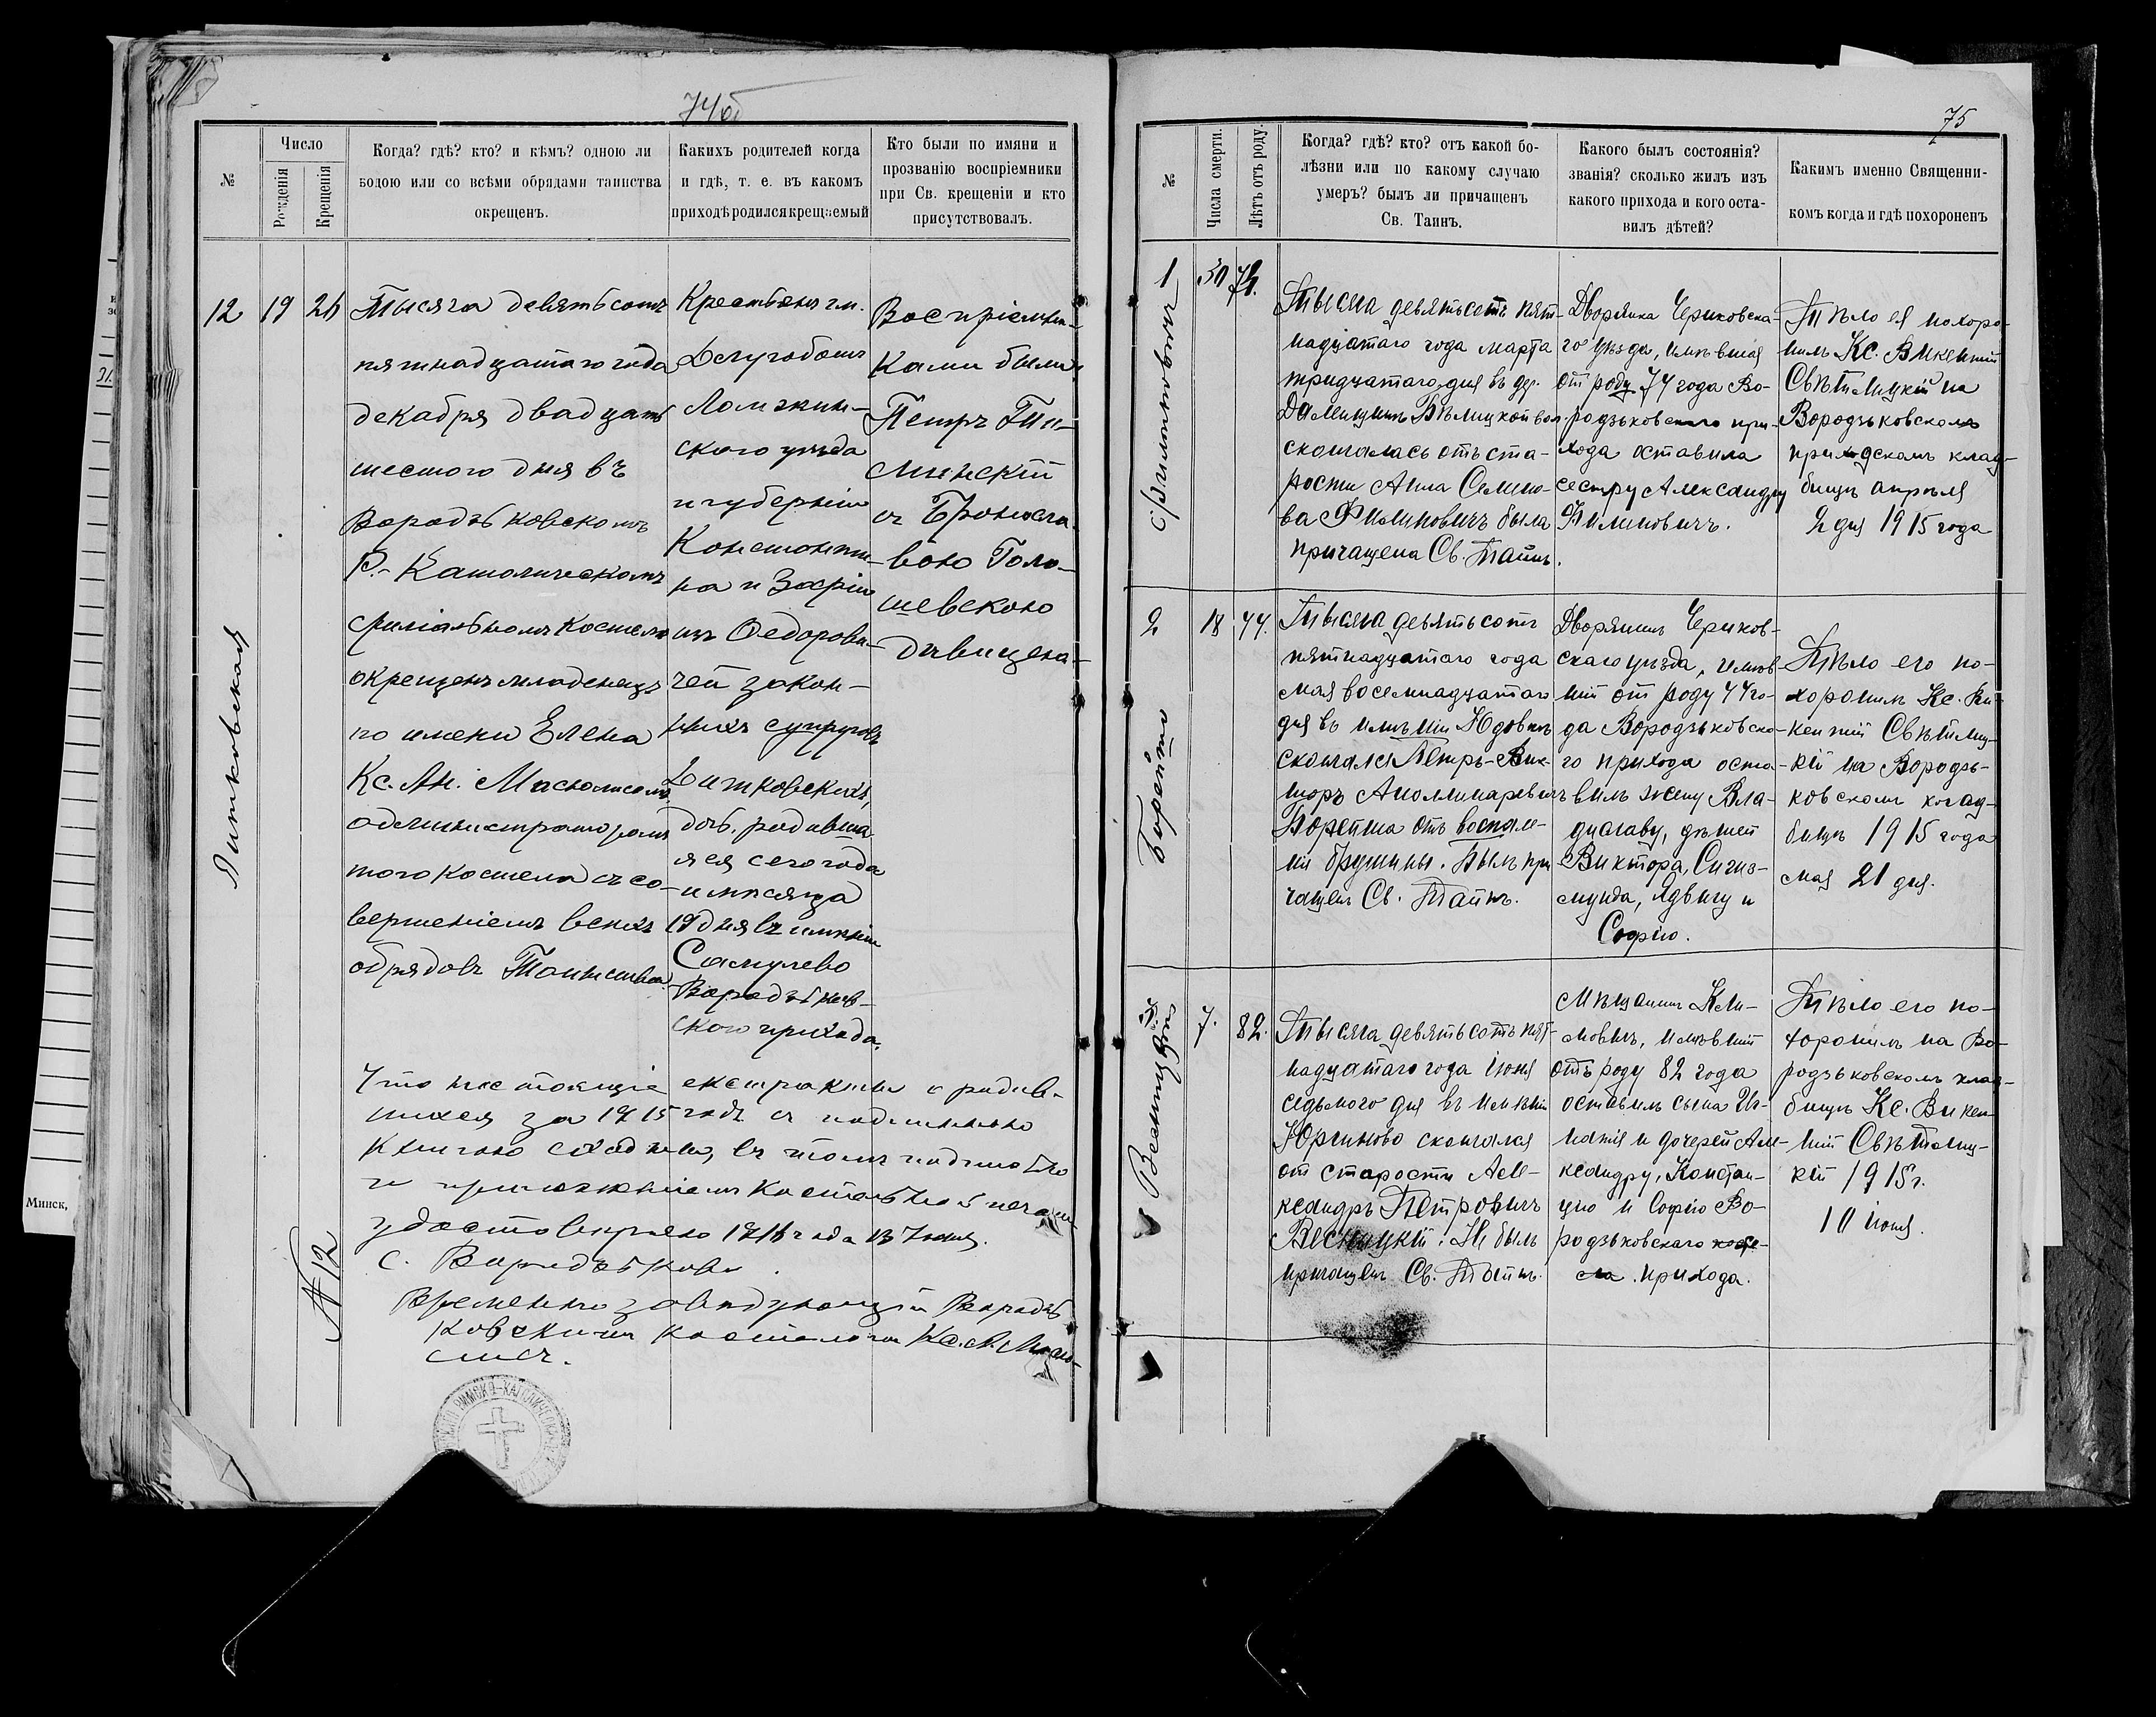 74об
№
Число
Рожденія
Крещенія
Когда? гдѣ? кто? и кѣмъ? одною ли
водою или со всѣми обрядами таинства
окрещенъ.
Какихъ родителей когда
и гдѣ, т. е. въ какомъ
приходѣ родился крещаемый
Кто были по имяни и
прозванію воспріемники
при Св. крещеніи и кто
присутствовалъ.
12
19
26
Тысяча девятьсотъ
пятнадцатаго года
декабря двадцать
шестого дня въ
Вородьковскомъ
Р.-Католическомъ
филіальномъ костелѣ
окрещенъ младенецъ
по имени Елена
Кс. Ан.
администраторомъ
того костела съ со-
вершеніемъ всѣхъ
обрядовъ Таинства.
Крестьянъ гм.
Ломжин-
ского уѣзда
и губерніи
Константи-
на и Зофіи
изъ Федорови-
чей закон-
ныхъ супруговъ
дочь, родивша-
яся сего года
и мѣсяца
19 дня въ имѣніи
Самулево
Вородьков-
ского прихода.
Воспріемни-
ками были
Петръ
съ Бронисла-
вою Голо-
шевскою
дѣвицею
Что настоящіе екстракты о родив-
шихся за 1915 годъ съ подлинною
книгою сходны, въ томъ подписью
и приложеніемъ костельной печати
удостовѣряю 1916 года 13 Іюня.
с. Вородьково
Временно завѣдующій Вородь-
ковскимъ костеломъ Кс. А.
№ 12
Минск,
75
№
Числа смерти.
Лѣтъ отъ роду.
Когда? гдѣ? кто? отъ какой бо-
лѣзни или по какому случаю
умеръ? былъ ли причащенъ
Св. Таинъ.
Какого былъ состоянія?
званія? сколько жилъ изъ
какого прихода и кого оста-
вилъ дѣтей?
Какимъ именно Священни-
комъ когда и гдѣ похороненъ
1
30
74.
Филиповичъ
Тысяча девятьсотъ пят-
надцатаго года марта
тридцатаго дня въ дер.
скончалась отъ ста-
рости Анна Семено-
ва Филиповичъ была
причащена Св. Таинъ.
Дворянка Чериковска-
го уѣзда, имѣвшая
отъ роду 74 года Во-
родьковскаго при-
хода оставила
сестру Александру
Филиповичъ.
Тѣло ея похоро-
нилъ Кс. Викентій
Свѣтлицкій на
Вородьковскомъ
приходскомъ клад-
бищѣ апрѣля
2 дня 1915 года
2
18
44.
Борейто
Тысяча девятьсотъ
пятнадцатаго года
мая восемнадцатаго
дня въ имѣніи
скончался Петръ-Вик-
торъ Аполлинаревичъ
Борейша отъ воспале-
нія брюшины. Былъ при-
чащенъ Св. Таинъ.
Дворянинъ Чериков-
скаго уѣзда, имѣв-
шій отъ роду 44 го-
да Вородьковска-
го прихода оста-
вилъ жену Вла-
диславу, дѣтей
Виктора, Сигиз-
мунда, Ядвигу и
Софію.
Тѣло его по-
хоронилъ Кс. Ви-
кентій Свѣтлиц-
кій на Вородь-
ковскомъ клад-
бищѣ 1915 года
мая 21 дня.
3
7.
82.
Тысяча девятьсотъ пят-
надцатаго года іюня
седьмого дня въ имѣніи
Юрьиново скончался
отъ старости Але-
ксандръ Петровичъ
Не былъ
причащенъ Св. Таинъ.
Мѣщанинъ Кли-
мовичъ, имѣвшій
отъ роду 82 года
оставилъ сына Иг-
натія и дочерей Але-
ксандру, Констан-
цію и Софію Во-
родьковскаго косте-
ла прихода.
Тѣло его по-
хоронилъ на Во-
родьковскомъ клад-
бищѣ Кс. Викен-
тій Свѣтлиц-
кій 1915 г.
10 іюня.
РИМСКО-КАТОЛИЧЕСК